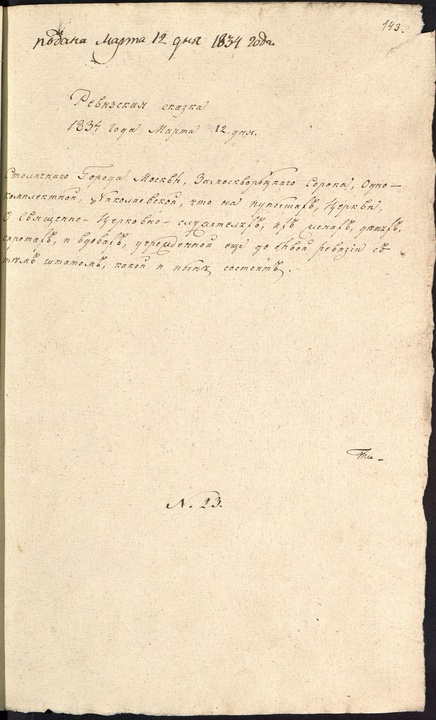 143.
подана Марта 12 дня 1834 года.
Ревизская сказка
1834 года Марта 12. дня.
Столичнаго Города Москвы, Замоскворѣцкаго Сорока, Одно-
комплектной, Николаевской, что на пупышахъ, Церкви,
О Священно-Церковно-служителяхъ, ихъ женахъ, дѣтяхъ,
сиротахъ, и вдовахъ, учрежденной еще до 1вой ревизiи съ
тѣмъ штатомъ, какой и нынѣ состоитъ.
N. 23.